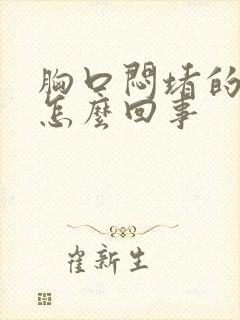 胸口悶堵的
怎麼回事
崔新生